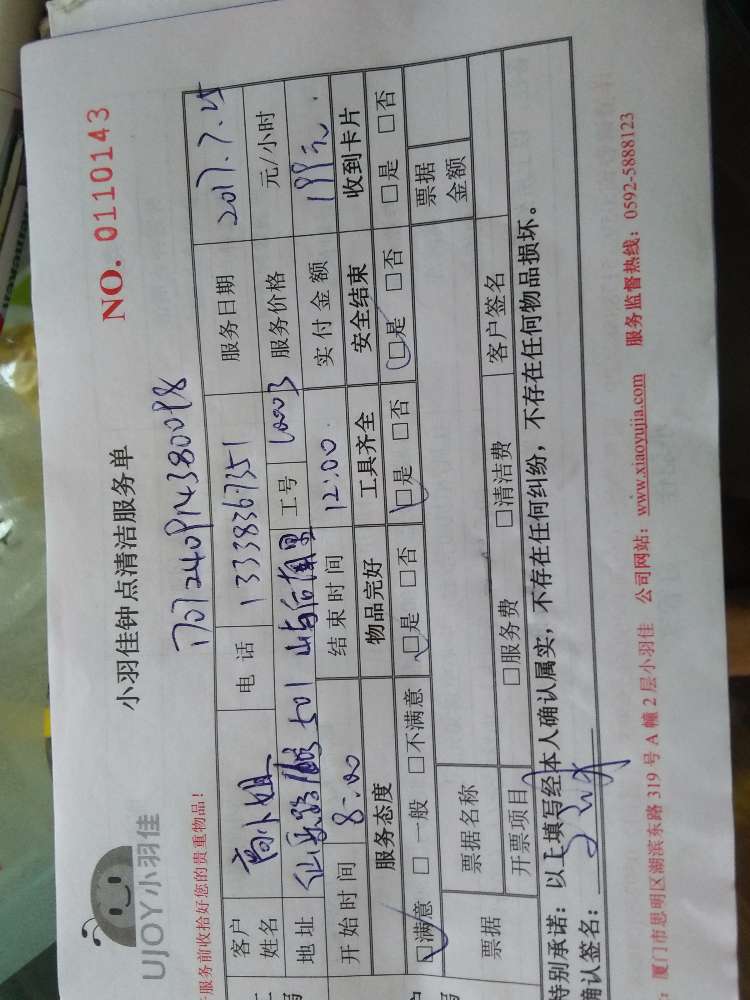 UJOY小羽佳
小羽佳钟点清洁服务单
NO. 0110143
服务前收拾好您的贵重物品!
客户姓名 小姐 电话 13338367351 服务日期 2017.7.25
地址 501 工号 服务价格 元/小时
开始时间 8:00 结束时间 12:00. 实付金额 199元.
服务态度 物品完好 工具齐全 安全结束 收到卡片
□满意 □一般 □不满意 □是 □否 □是 □否 □是 □否 □是 □否
票据 票据名称 票据金额
开票项目 □服务费 □清洁费 客户签名
特别承诺:以上填写经本人确认属实,不存在任何纠纷,不存在任何物品损坏。
确认签名:
:厦门市思明区湖滨东路319号A幢2层小羽佳 公司网站:www.xiaoyujia.com 服务监督热线:0592-5888123